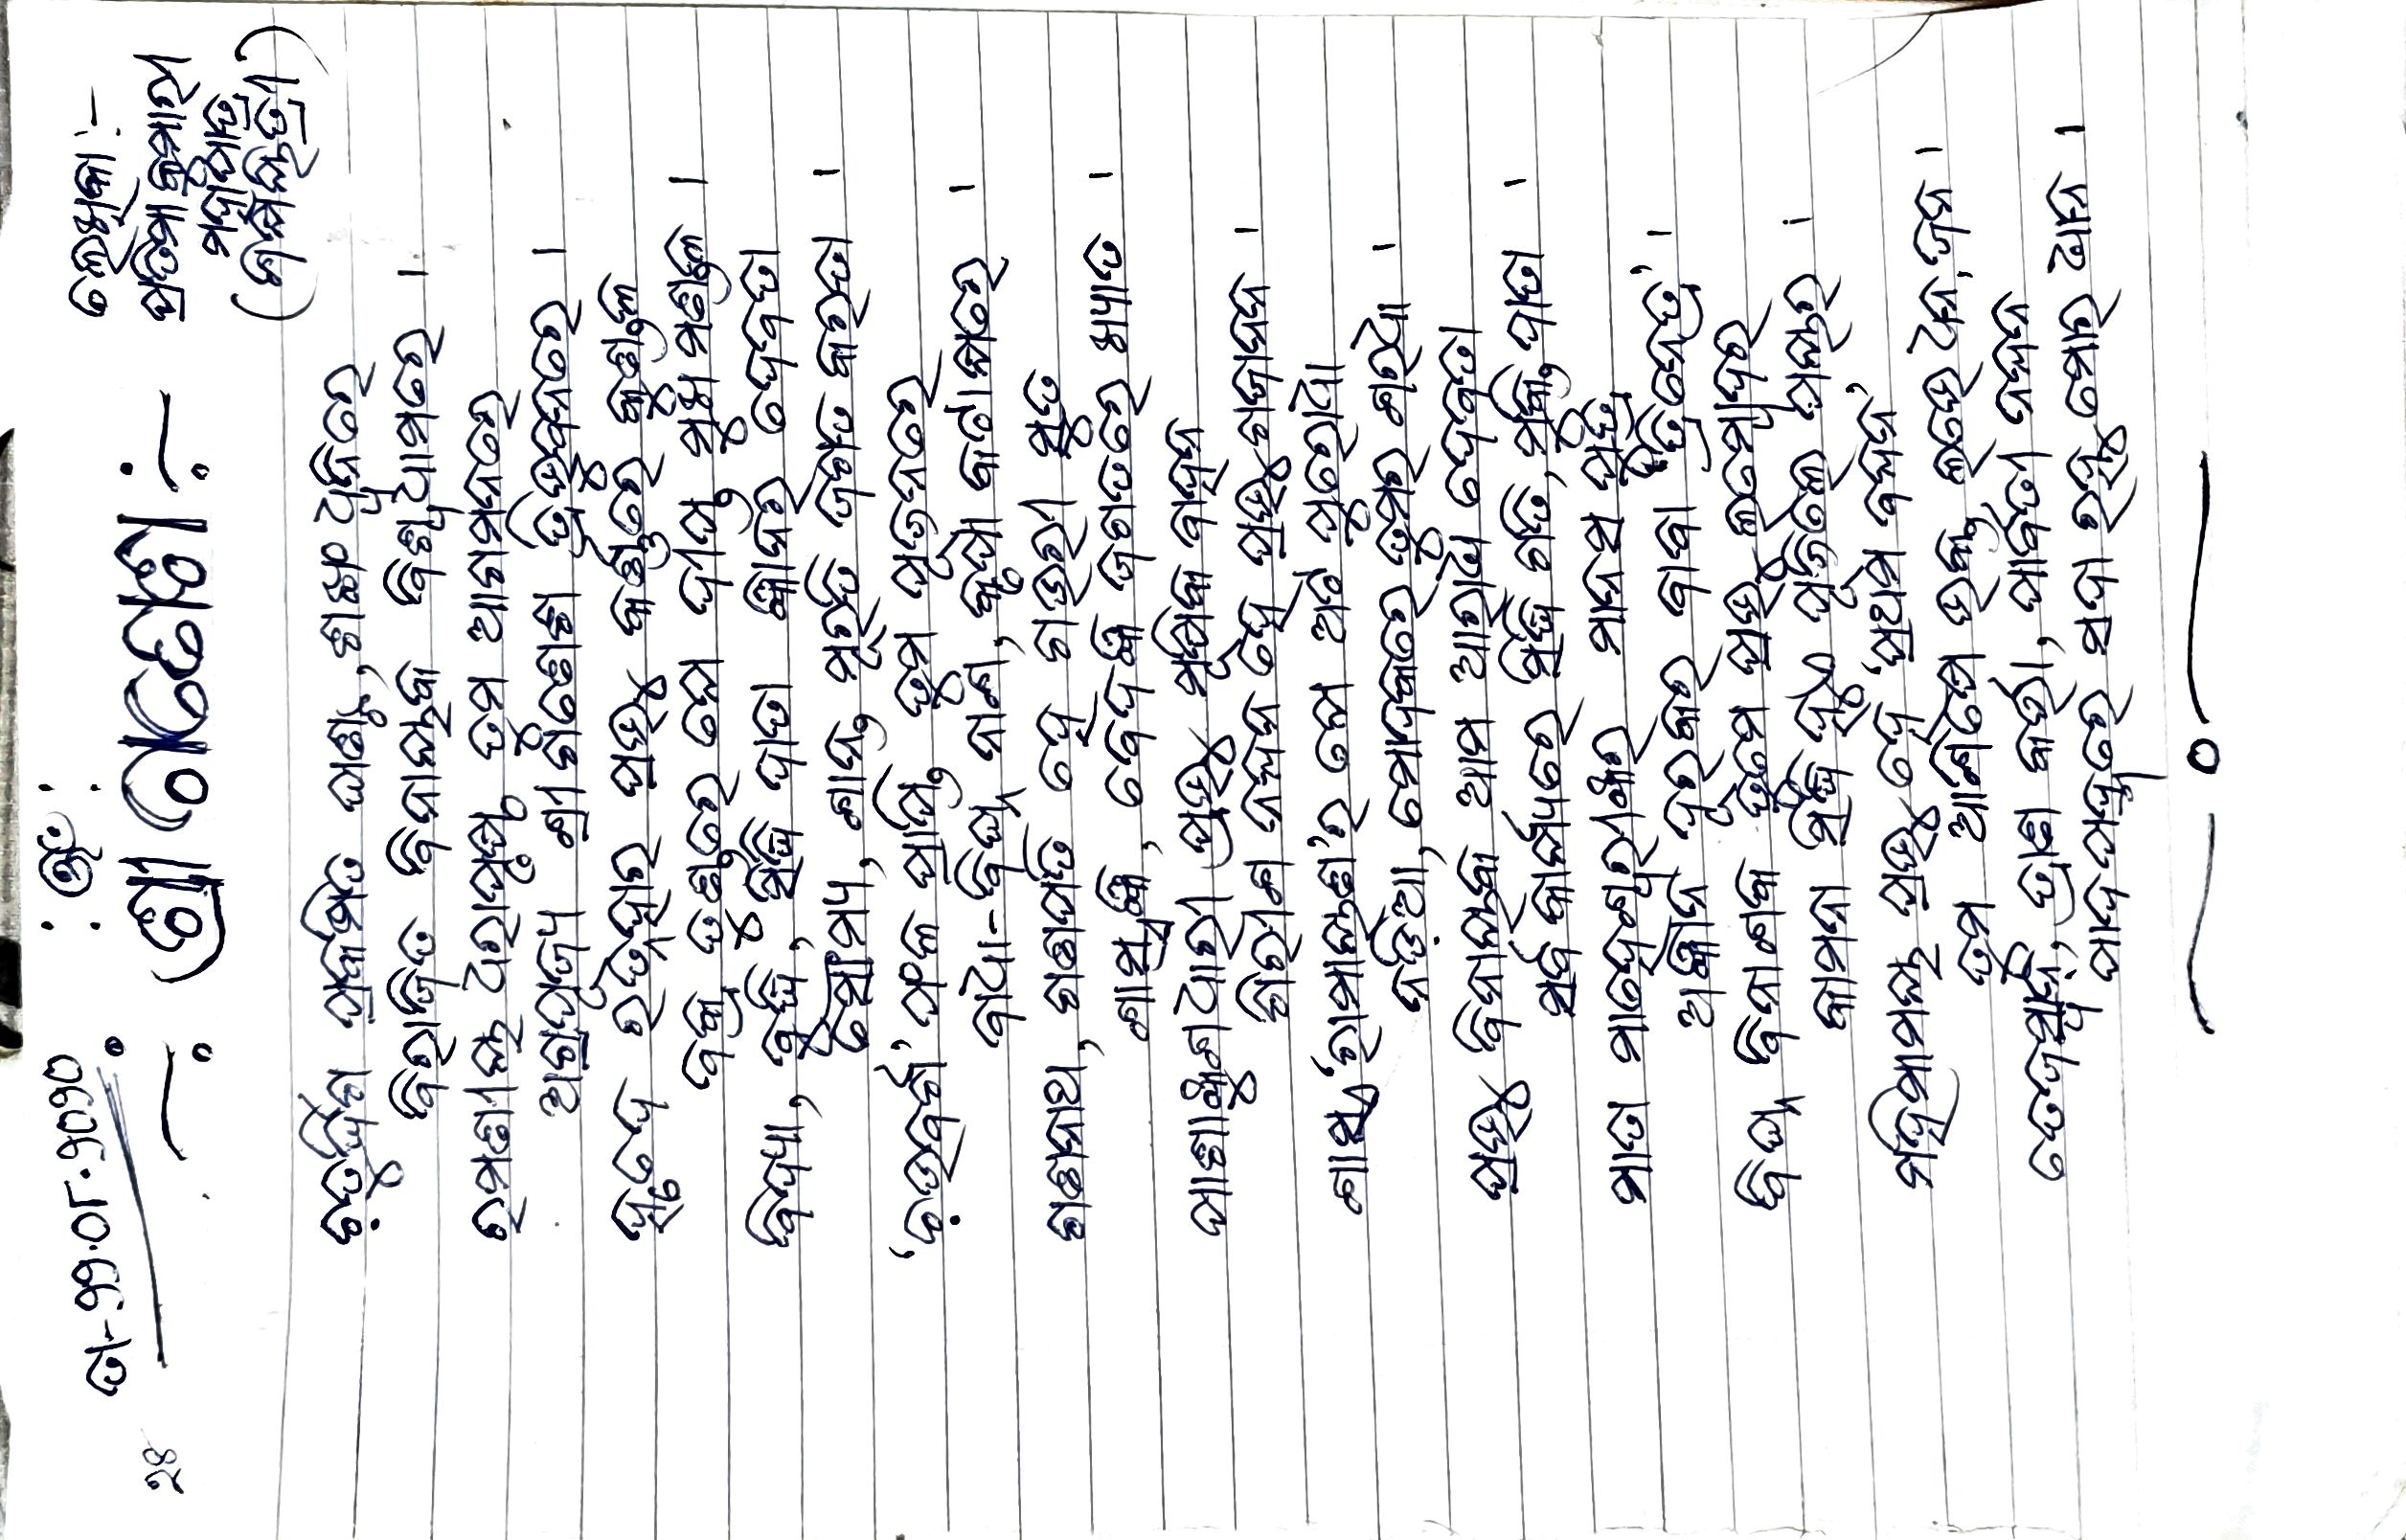 ତା-୨୨.୦୮.୨୦୨୦
: ଓଁ :
ଲେଖିକା :-
28
-: ଶ୍ରୀ ଗଣେଶ :-
ପ୍ରତିମା କୁମାରୀ
ମହାପାତ୍ର
(ଶିକ୍ଷୟିତ୍ରୀ)
ଚ଼ତୁର୍ଦ୍ଦିଗ ପ୍ରକମ୍ପିତ ଘଣ୍ଟ, ଶଙ୍ଖ ଧ୍ୱନିରେ
ବିରାଜିତ ବିନାୟକ ବିଶ୍ୱଧାମରେ ।
ରମଣୀୟ ଧରାପୃଷ୍ଠ ତୁମ ଆଗମନରେ
ଅଗ୍ରପୂଜ୍ୟ ଶ୍ରୀ ଗଣେଶ ତ୍ରିଭୁବନରେ ।
ହୃଦେ ରତ୍ନହାର ପ୍ରଭୁ କର୍ଣ୍ଣରେ କୁଣ୍ଡଳ
ବକ୍ର ତୁଣ୍ଡରେ ସେ ଦୀପ୍ତ ମୁଖ ମଣ୍ଡଳ ।
ବିଦ୍ୟା, ବୁଦ୍ଧି, ସିଦ୍ଧି ଦାତା ଜ୍ଞାନର ଦେବତା
ସୌମ୍ୟ, ଶାନ୍ତ ମୂରତି ଜଗତ କରତା ।
‘ଚ଼ଉବର୍ଗ’ ଫଳ ପ୍ରାପ୍ତି ତୁମ ପୂଜନରେ
ବାଧା-ବିଘ୍ନ ନାଶ, କୃପା କଟାକ୍ଷରେ ।
ଗଣନାଥ, ଗଣପତି ହେ ଗଉରୀ ସୁତ
ଶାସ୍ତ୍ରଜ୍ଞ, ବେଦଜ୍ଞ ଜଗତରେ ଖ୍ୟାତ ।
ପାଶାଙ୍କୁଶଧାରୀ ପ୍ରଭୁ ମୂଷିକ ବାହନ
ଗିରୀଶ ନନ୍ଦନ ହେ ପ୍ରଭୁ ଗଜାନନ ।
ଶାସ୍ତ୍ର ‘ରାମାୟଣ’ର ସେ ଅଟ ପୁରୋଧା
ନଡ଼ିଆ, ମୋଦକରେ ତୁମର ଶରଧା ।
ପ୍ରଭୁ ବିନାୟକ ଆମ ଆରାଧ୍ୟ ଦେବତା
ସର୍ବ କାର୍ଯ୍ୟରେ ସିଦ୍ଧି ଗତି, ମୁକ୍ତି ଦାତା ।
ମାତା ମାହେଶ୍ୱରୀଙ୍କର ମାନସ ପୁତ୍ର
ଅଜ୍ଞାନ ଦୂରକର ବାବା ‘ତ୍ରିନେତ୍ର’ ।
ବିଘ୍ନ ବିନାଶକ ତୁମେ ପ୍ରଭୁ ଲମ୍ବୋଦର
କାମନା ସିଦ୍ଧି ହୁଏ ପୂଜିଲେ ପୟର ।
ମହିମାମୟ ପ୍ରଭୁ ହେ ‘ପ୍ରଥମ ବନ୍ଦନ’
ତୁମ ଆଶିଷେ ଭକ୍ତ ଲଭେ ଧନ, ଜନ ।
ତେଜସ୍ୱାନ୍, ତ୍ରାଣ କର୍ତ୍ତା, ପାର୍ବତୀ ନନ୍ଦନ
ପାଦ ପଦ୍ମରେ ସଦା ରହୁ ମୋର ଧ୍ୟାନ ।